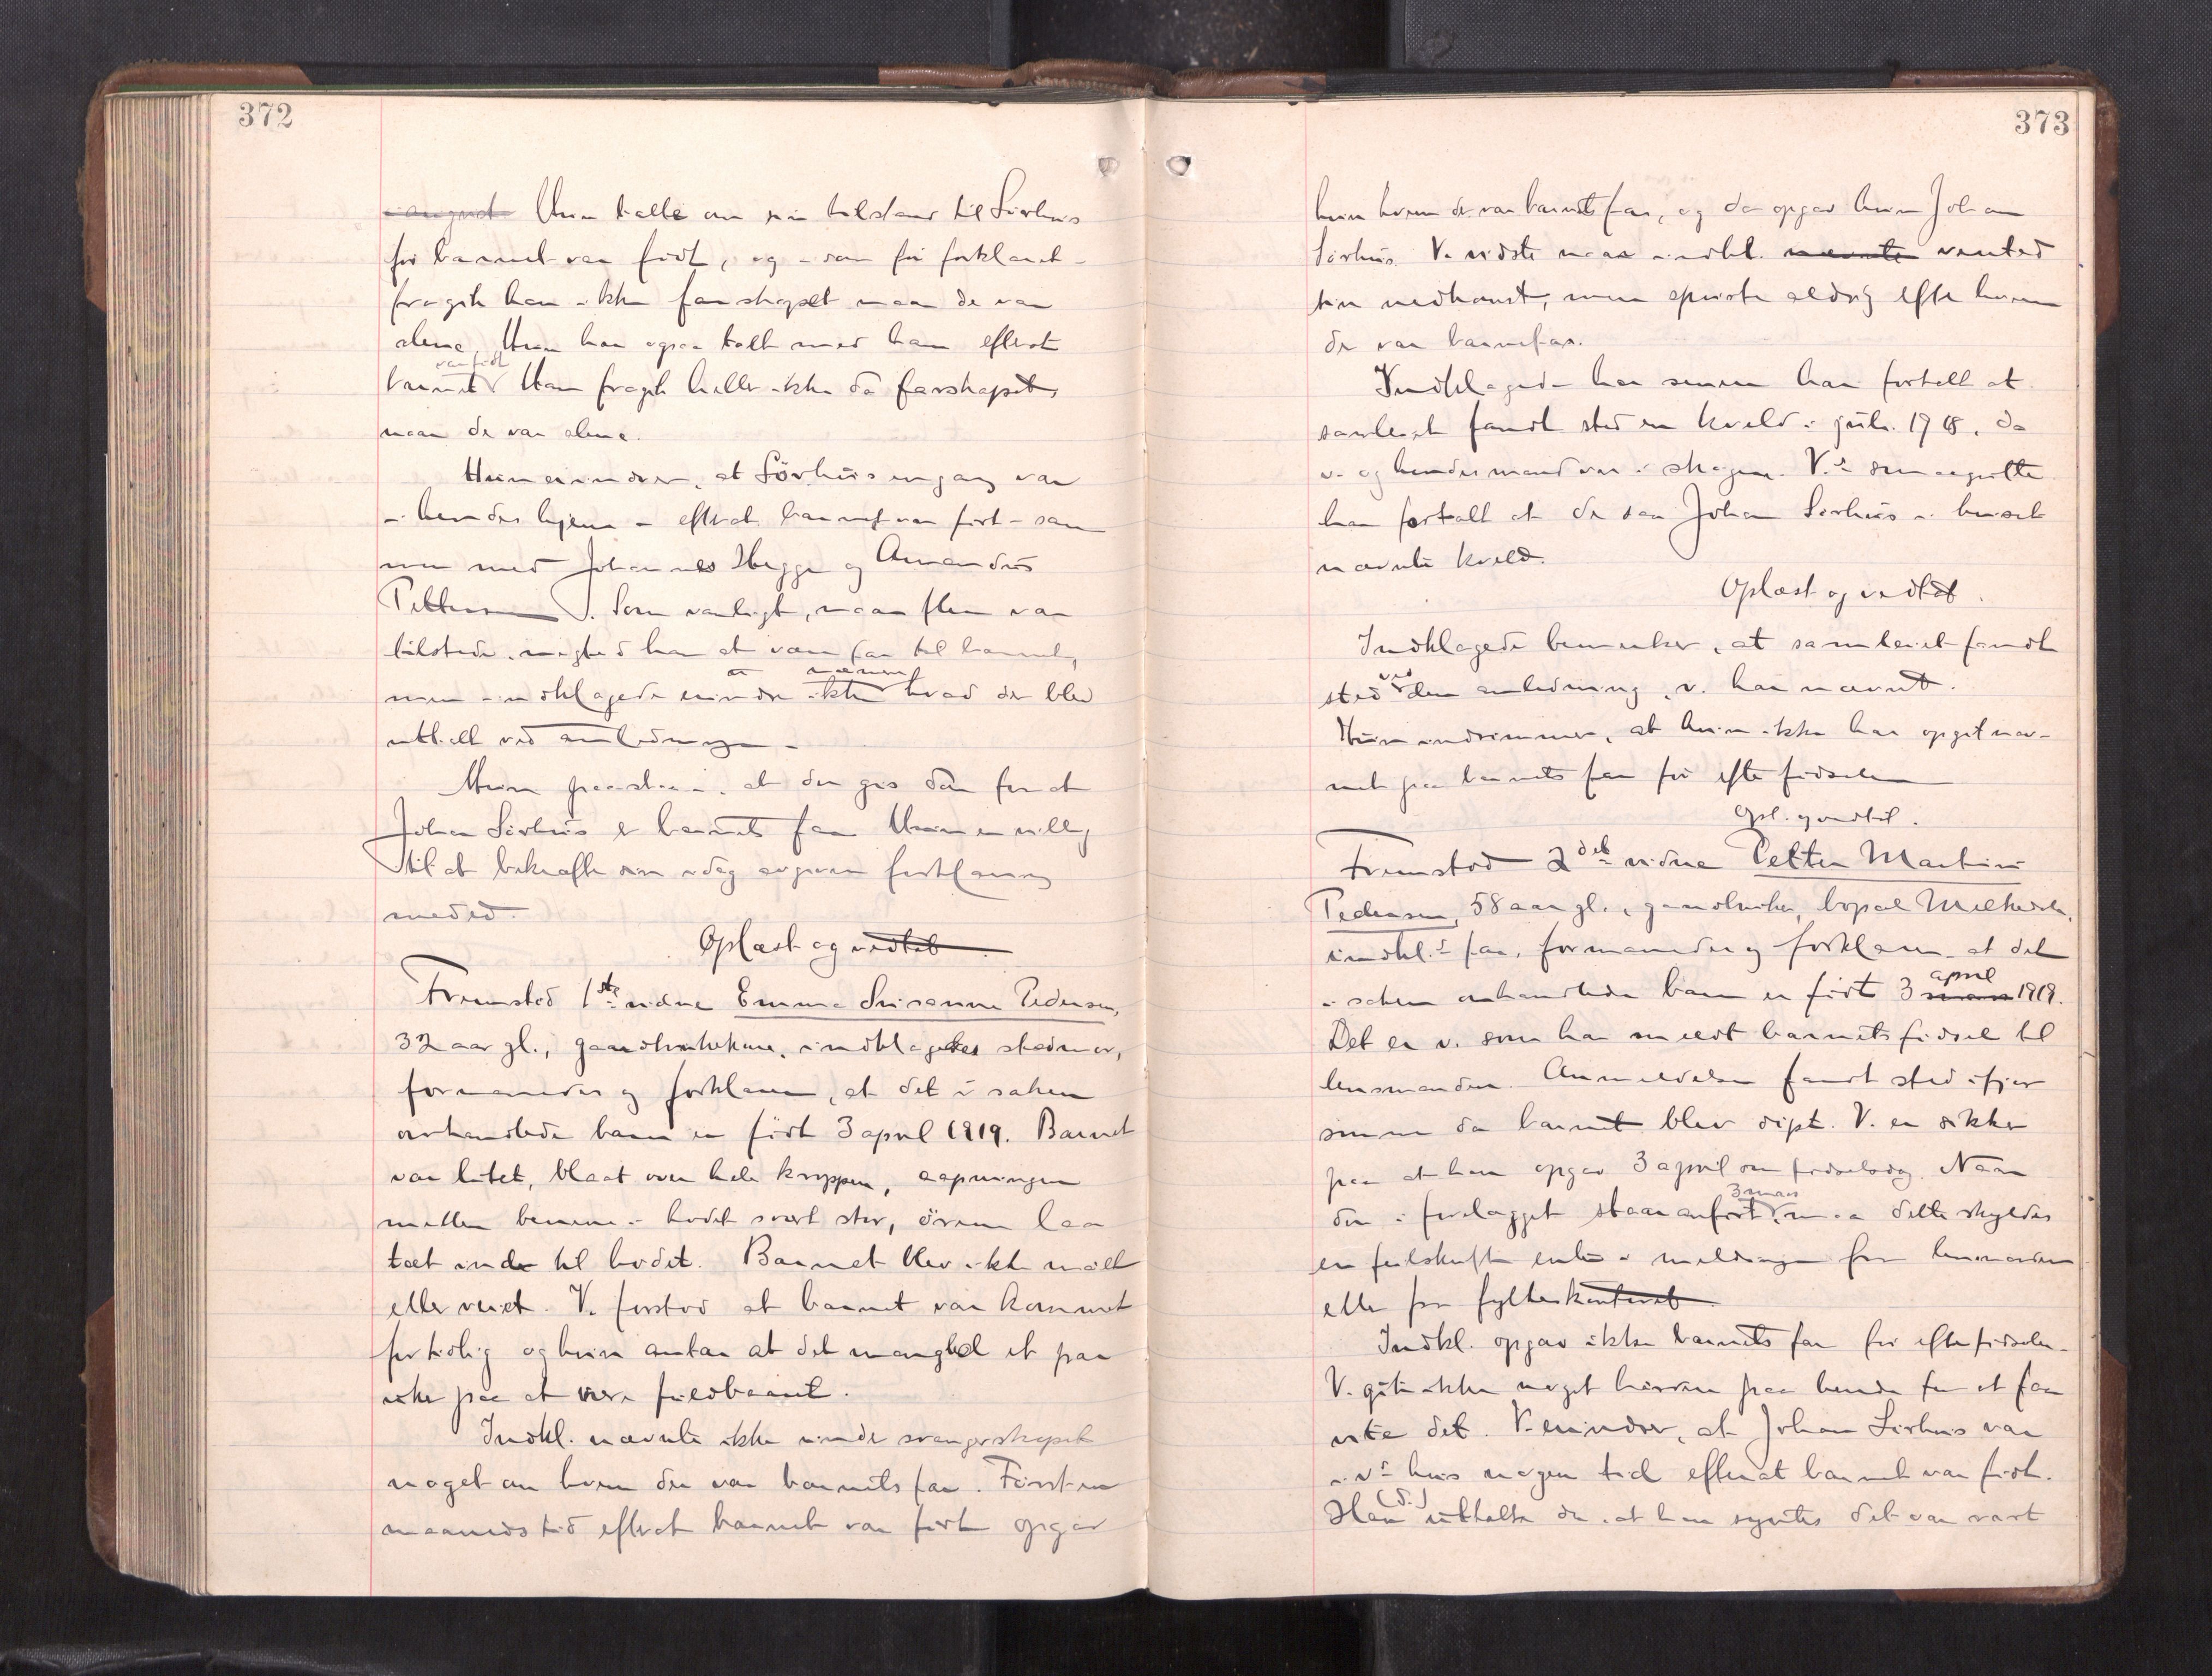 372
i august Hun talte om sin tilstand til Sörhus
för barnet var födt, og – som för forklaret –
fragik han ikke farskapet naar de var
alene. Hun har ogsaa talt med ham efterat
barnet var födt. Han fragik heller ikke da farskapet,
naar de var alene.
Hun erindrer, at Sörhus engang var
i hendes hjem – efterat barnet var födt – sam
men med Johannes Hegge og Amandus
Pettersen. Som vanligt, naar flere var
tilstede, negted han at være far til barnet,
men indklagede erindrer ikke nærmere hvad der blev
uttalt ved anledningen.
Hun paastaar, at der gis dom for at
Johan Sörhus er barnets far. Hun er villig
til at bekræfte sin idag avgivne forklaring
med ed.
Oplæst og vedtat
Fremstod 1ste vidne Emma Susanne Pedersen,
32 aar gl., gaardbrukerkone, indklagedes stedmor,
formanedes og forklarer, at det i saken
omhandlede barn er födt 3 april 1919. Barnet
var litet, blaat over hele kroppen, aapningen
mellem benene i hodet svært stor, örene laa
tæt inde til hodet. Barnet blev ikke maalt
eller veiet. V. forstod at barnet var kommet
for tidlig og hun antar at det manglet et par
uker paa at være fuldbaaret.
Indkl. nævnte ikke under svangerskapet
noget om hvem der var barnets far. Först en
maaneds tid efterat barnet var födt opgav
373
hun hvem der var barnets far, og da opgav hun Johan
Sörhus. V. vidste naar indkl. nævnte vented
sin nedkomst, men spurte aldrig efter hvem
der var barnefar.
Indklagede har senere har fortalt at
samleiet fandt sted en kveld i juli 1918, da
v. og hendes mand var i skogen. V.s smaagutter
har fortalt at de saa Johan Sörhus i huset
nævnte kveld.
Oplæst og vedtat.
Indklagede bemerker, at samleiet fandt
sted ved den anledning, v. har nævnt.
Hun indrömmer, at hun ikke har opgit nav-
net paa barnets far för efter födselen
Opl. og vedtat.
Fremstod 2det vidne Petter Martin
Pedersen, 58 aar gl., gaardbruker, bopæl
indkl.s far, formanedes og forklarer at det
i saken omhandlede barn er födt 3 mars april 1919.
Det er v. som har meldt barnets födsel til
lensmanden. Anmeldelsen fandt sted ifjor
sommer da barnet blev döpt. V. er sikker
paa at han opgav 3 april som födselsdag. Naar
der i forelægget staar anfört 3 mars, maa dette skyldes
en feilskrift enten i meldingen fra lensmanden
eller fra fylkeskontoret
Indkl. opgav ikke barnets far för efter födselen.
V. gik ikke noget haardere paa hende for at faa
vite det. V. erindrer, at Johan Sörhus var
i v.s hus nogen tid efterat barnet var födt.
Han (S.) uttalte da, at han syntes det var rart